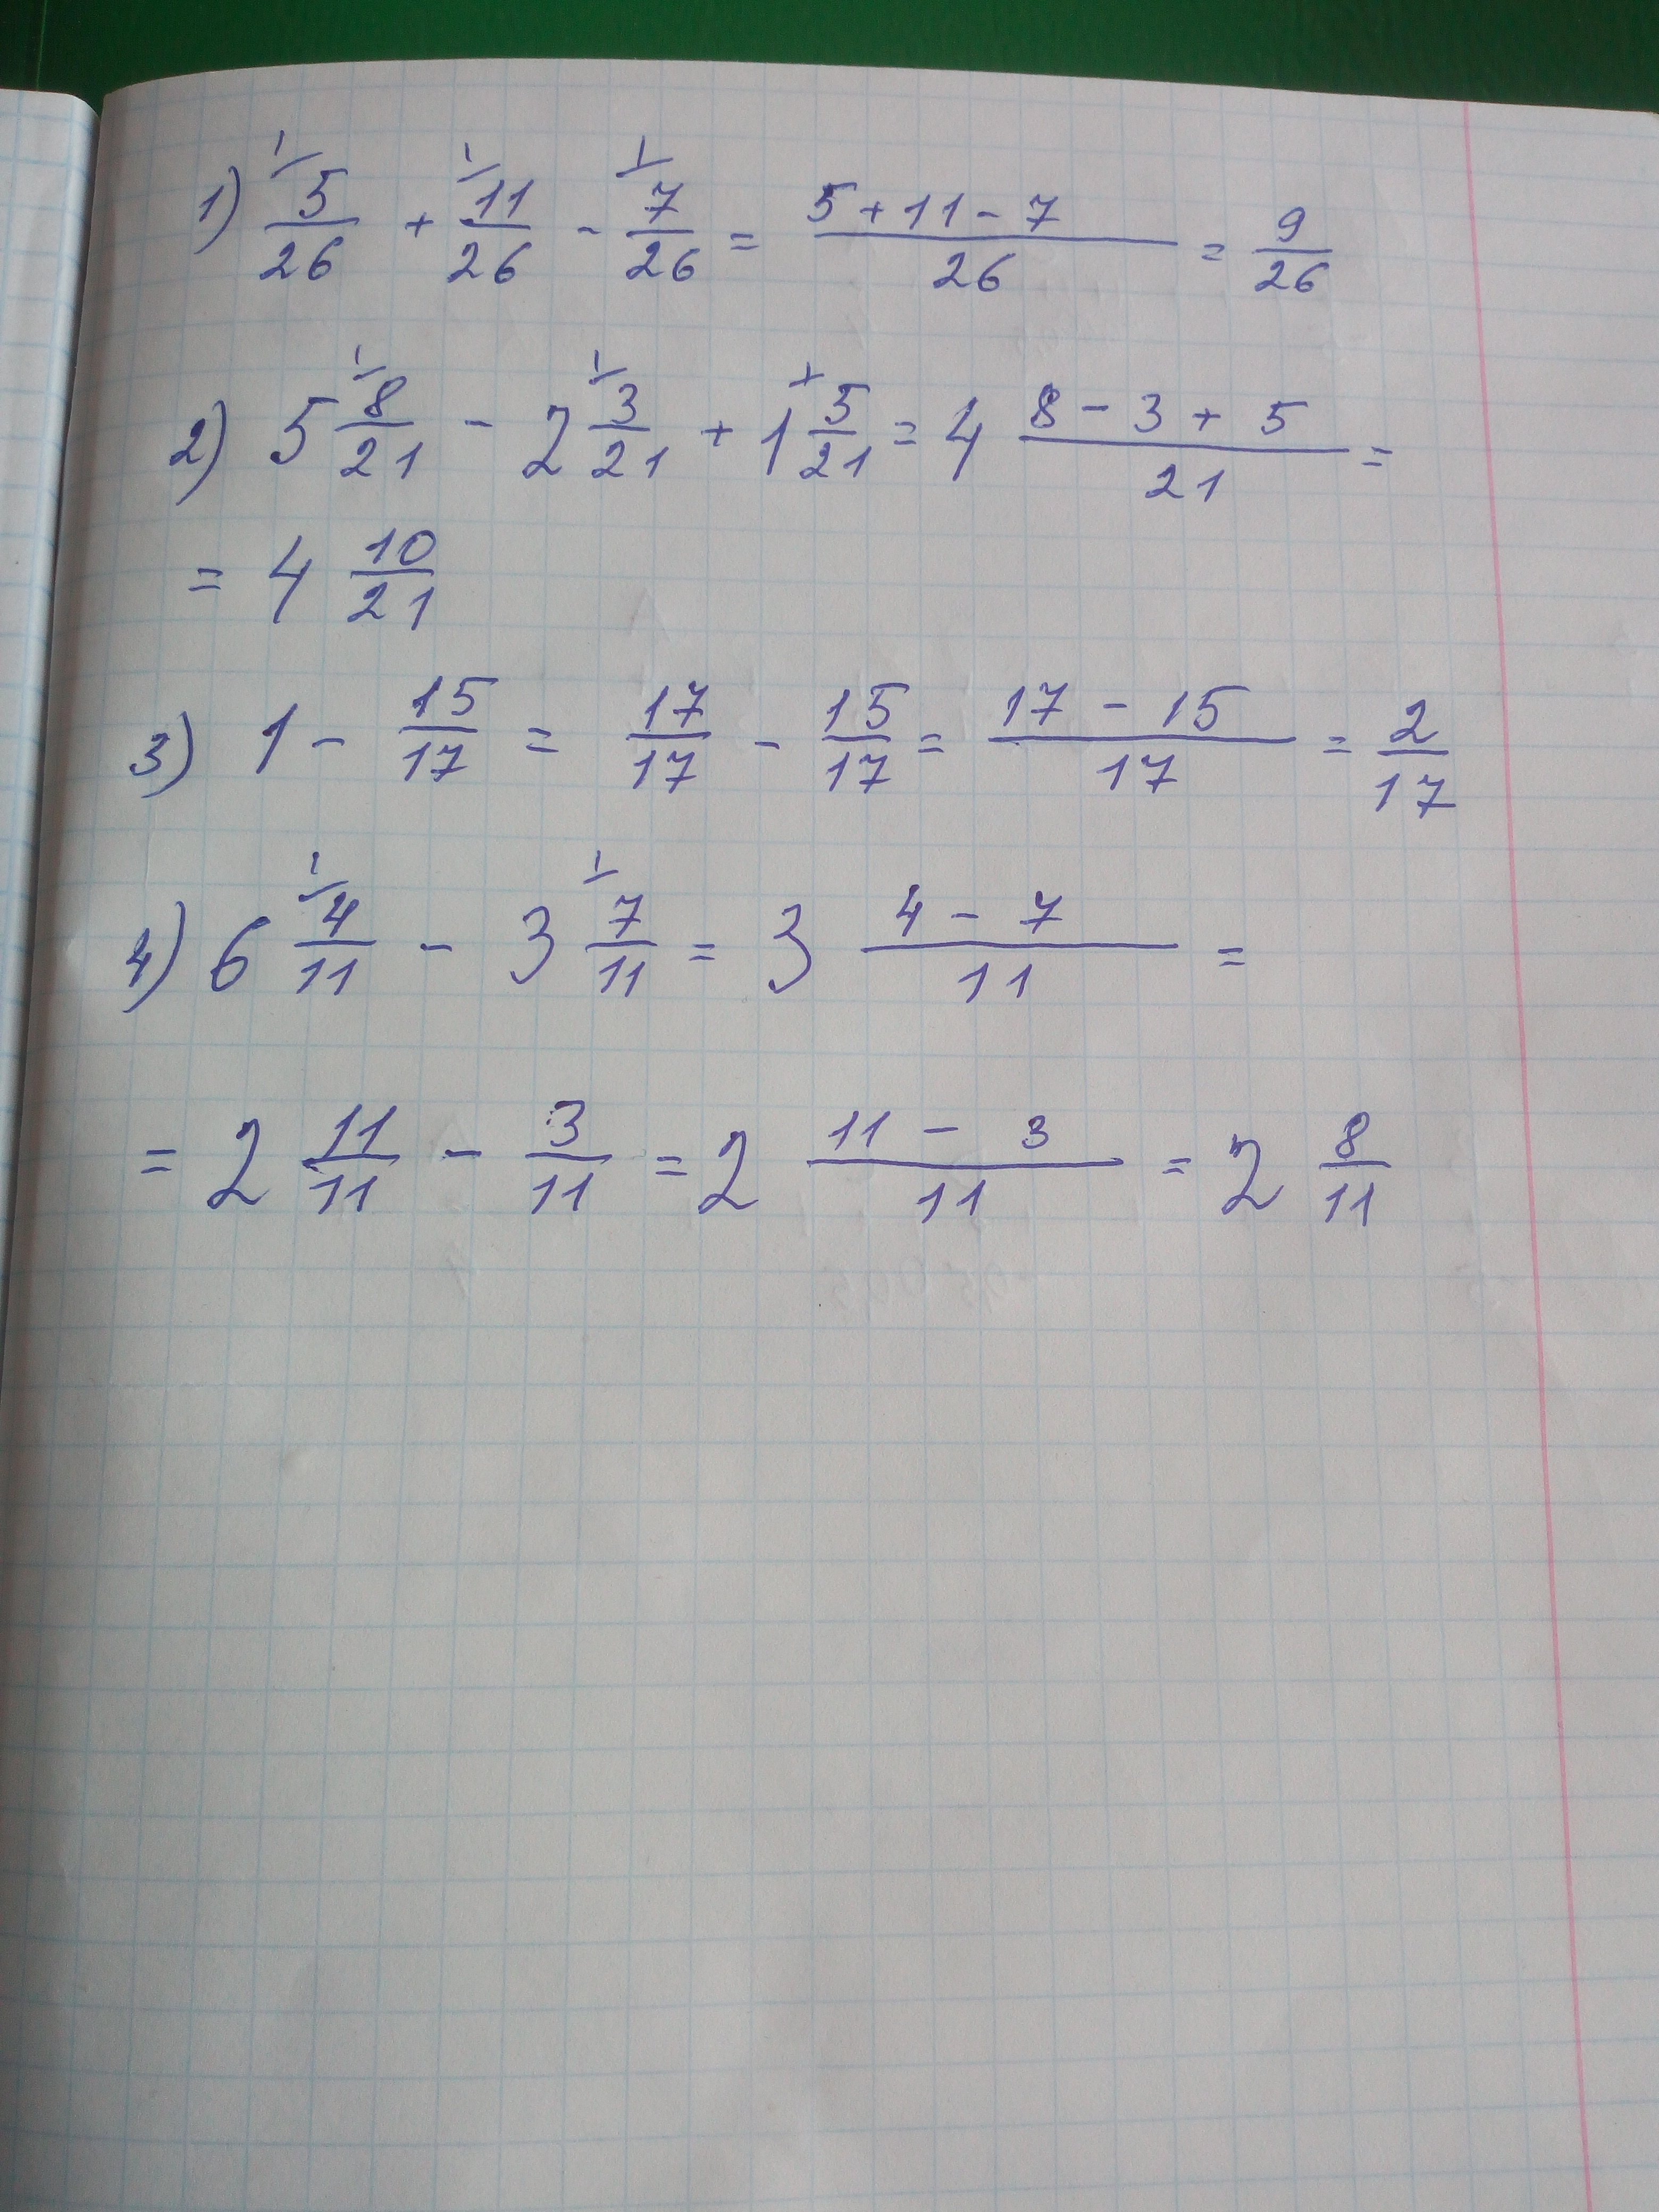 1) 1/ 5/26 + 1/ 11/26 - 1/ 7/26 = (5+11-7)/26 = 9/26
2) 5 1/ 8/21 - 2 1/ 3/21 + 1 1/ 5/21 = 4 (8-3+5)/21 =
= 4 10/21
3) 1 - 15/17 = 17/17 - 15/17 = (17-15)/17 = 2/17
4) 6 1/ 4/11 - 3 1/ 7/11 = 3 (4-7)/11 =
= 2 11/11 - 3/11 = 2 (11-3)/11 = 2 8/11